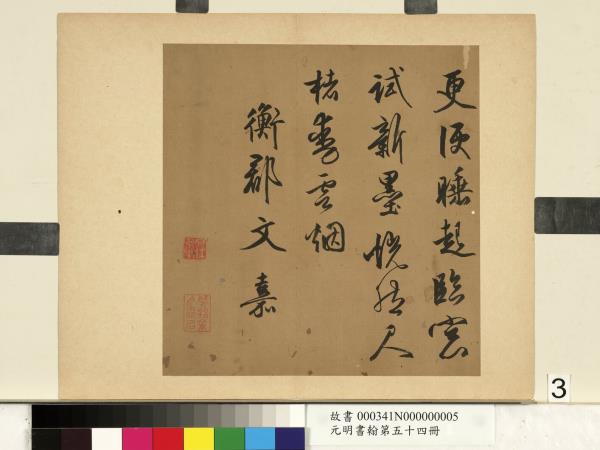 更便睡起臨窗
試新墨恍然尺
楮雲烟
衡郡文嘉
3
故書 000341N000000005
元明書翰第五十四冊